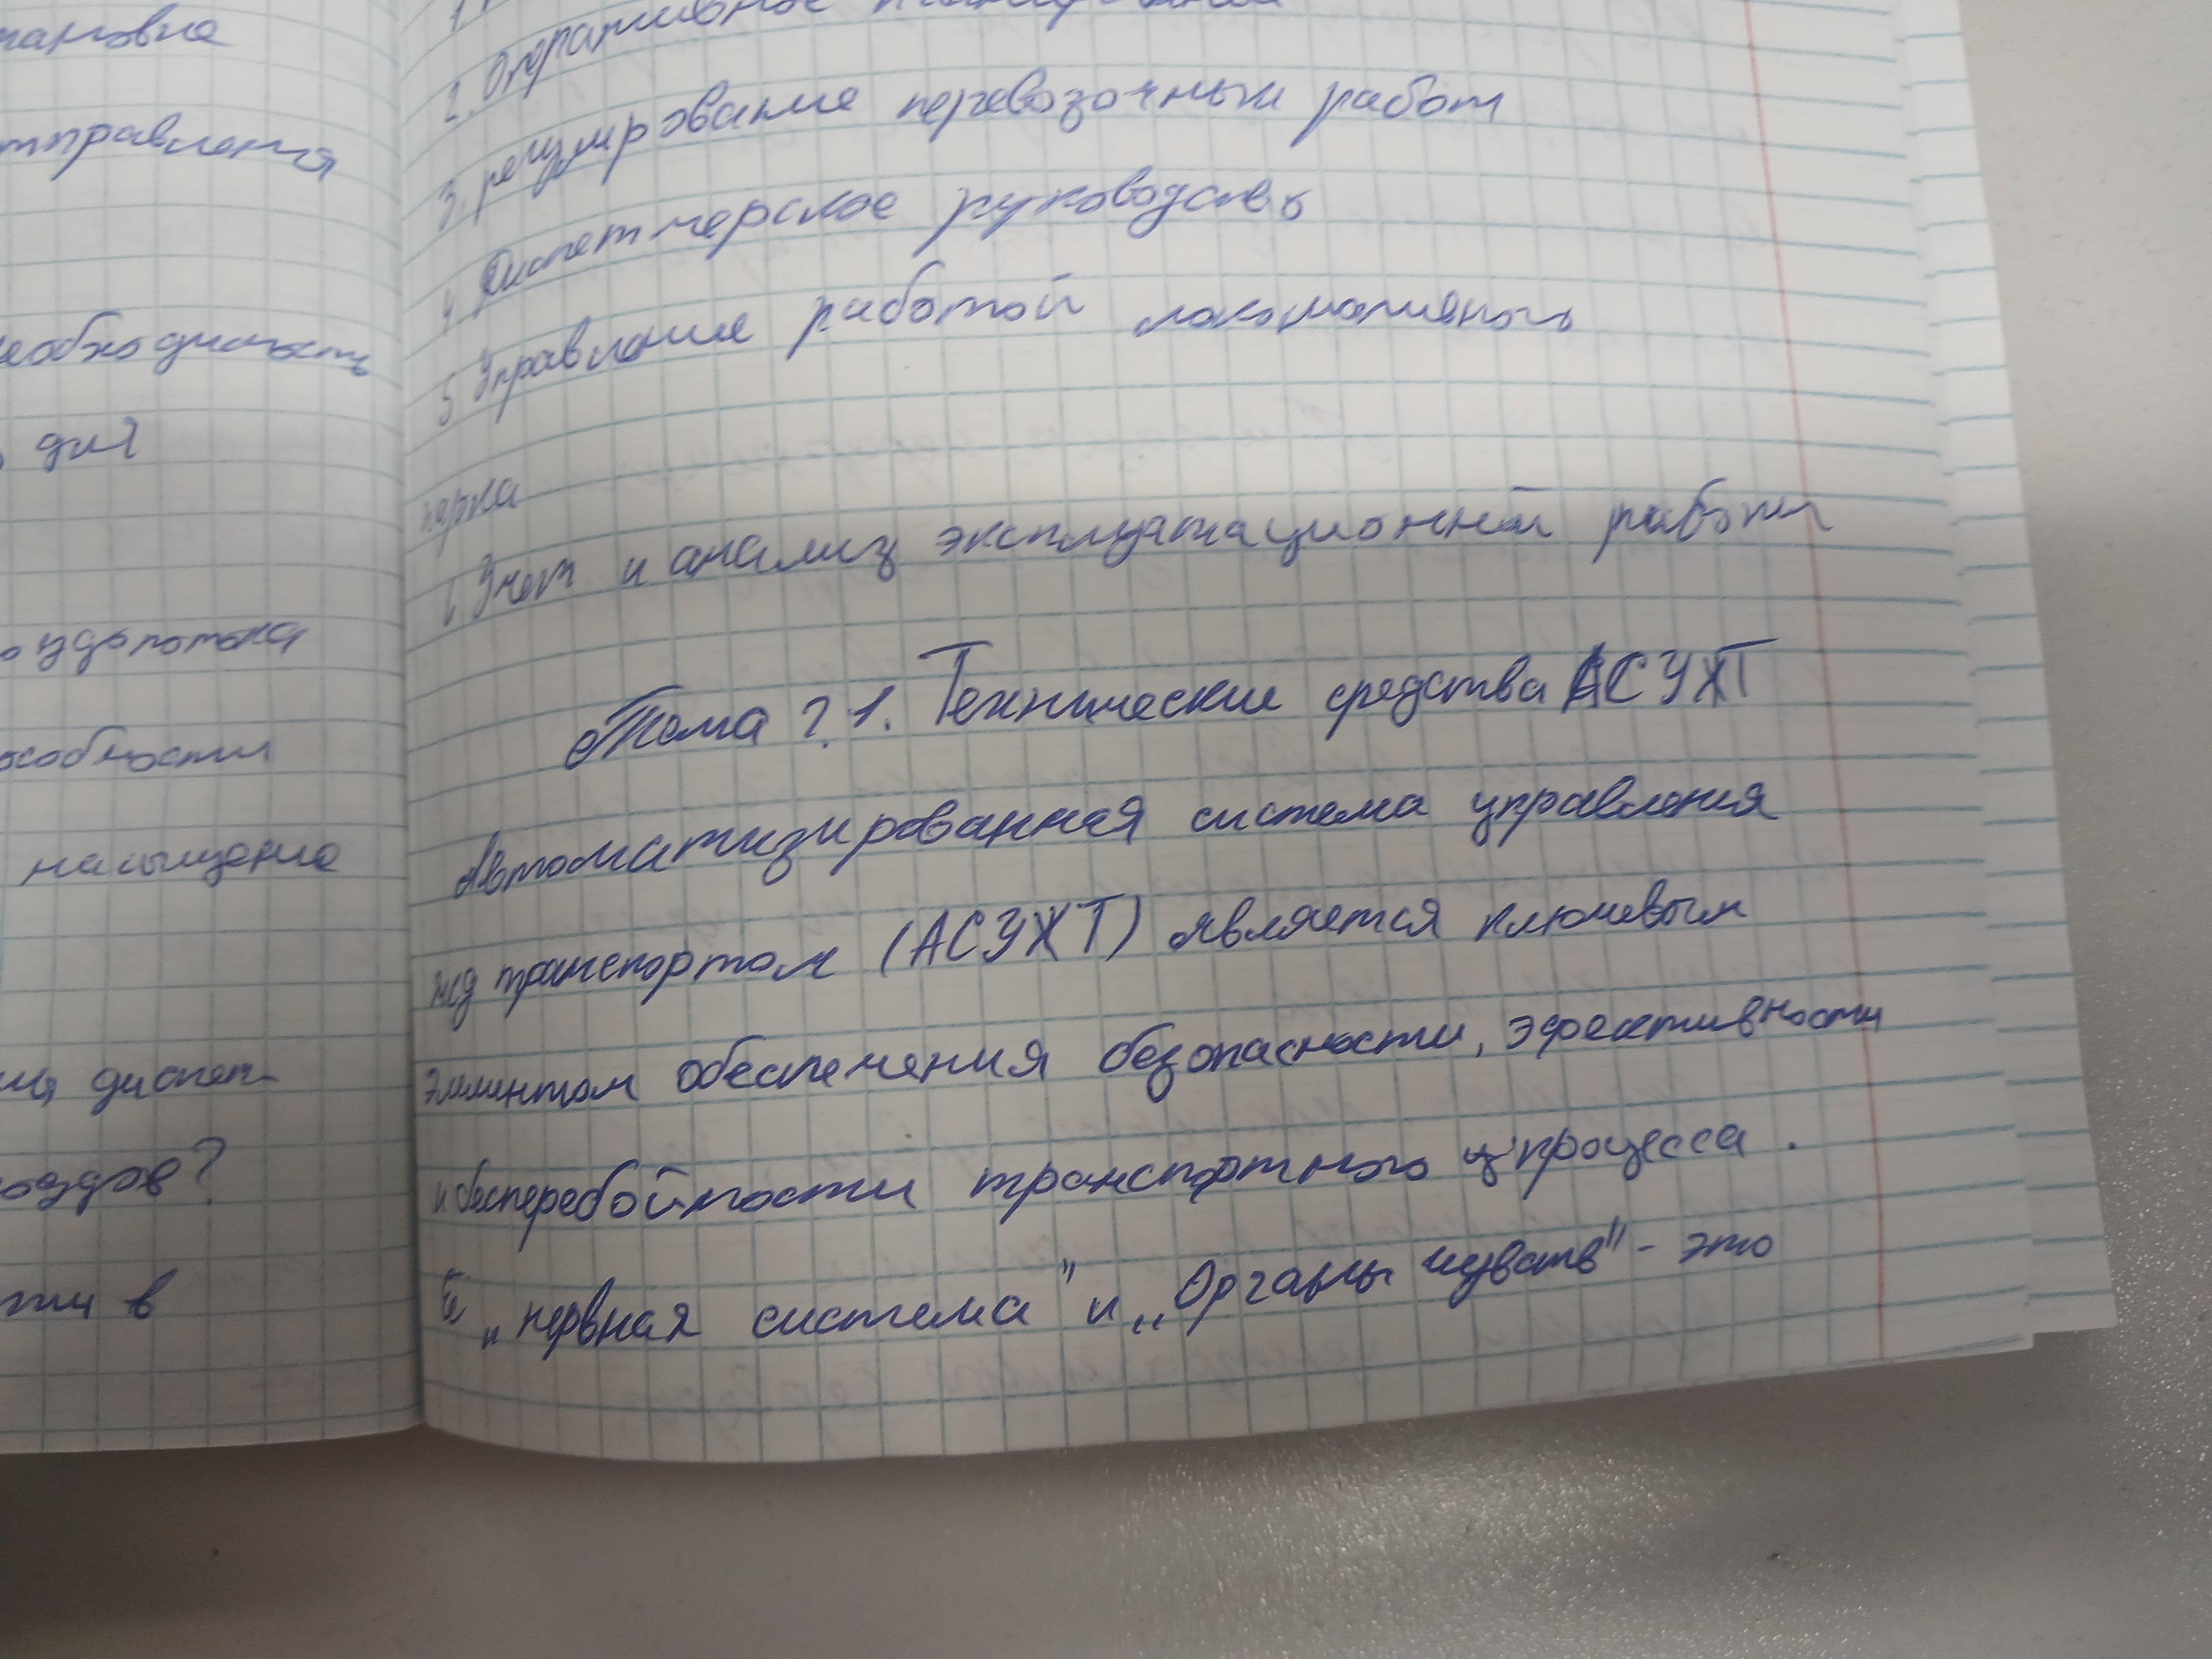 тановке
тправления
необходимость
для
особности
насыщение
диспет-
оездов?
в
2. Оперативное планирование
3. регулирование перевозочных работ
4 Диспетчерское руководство
5 Управление работой локомотивного
парка
6. Учет и анализ эксплуатационной работы
Тема 2.1. Технические средства АСУЖТ
Автоматизированная система управления
жд транспортом (АСУЖТ) является ключевым
элементом обеспечения безопасности, эфективности
и бесперебойности транспортного процесса.
Её „нервная система" и „Органы чувств" - это